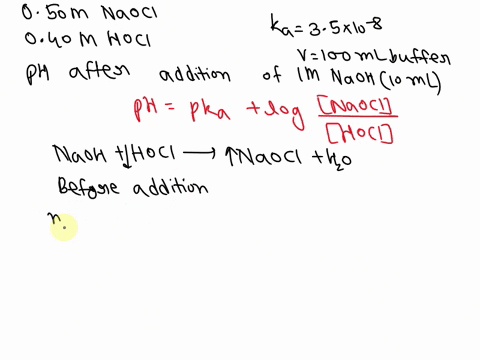 0.50m NaOCl
0.40 M HOCl
Ka = 3.5x10-8
V=100mL buffer
pH after addition of 1M NaOH (10 mL)
pH = pKa + log [NaOCl] / [HOCl]
NaOH + ↓HOCl → ↑NaOCl + H2O
Before addition
n.